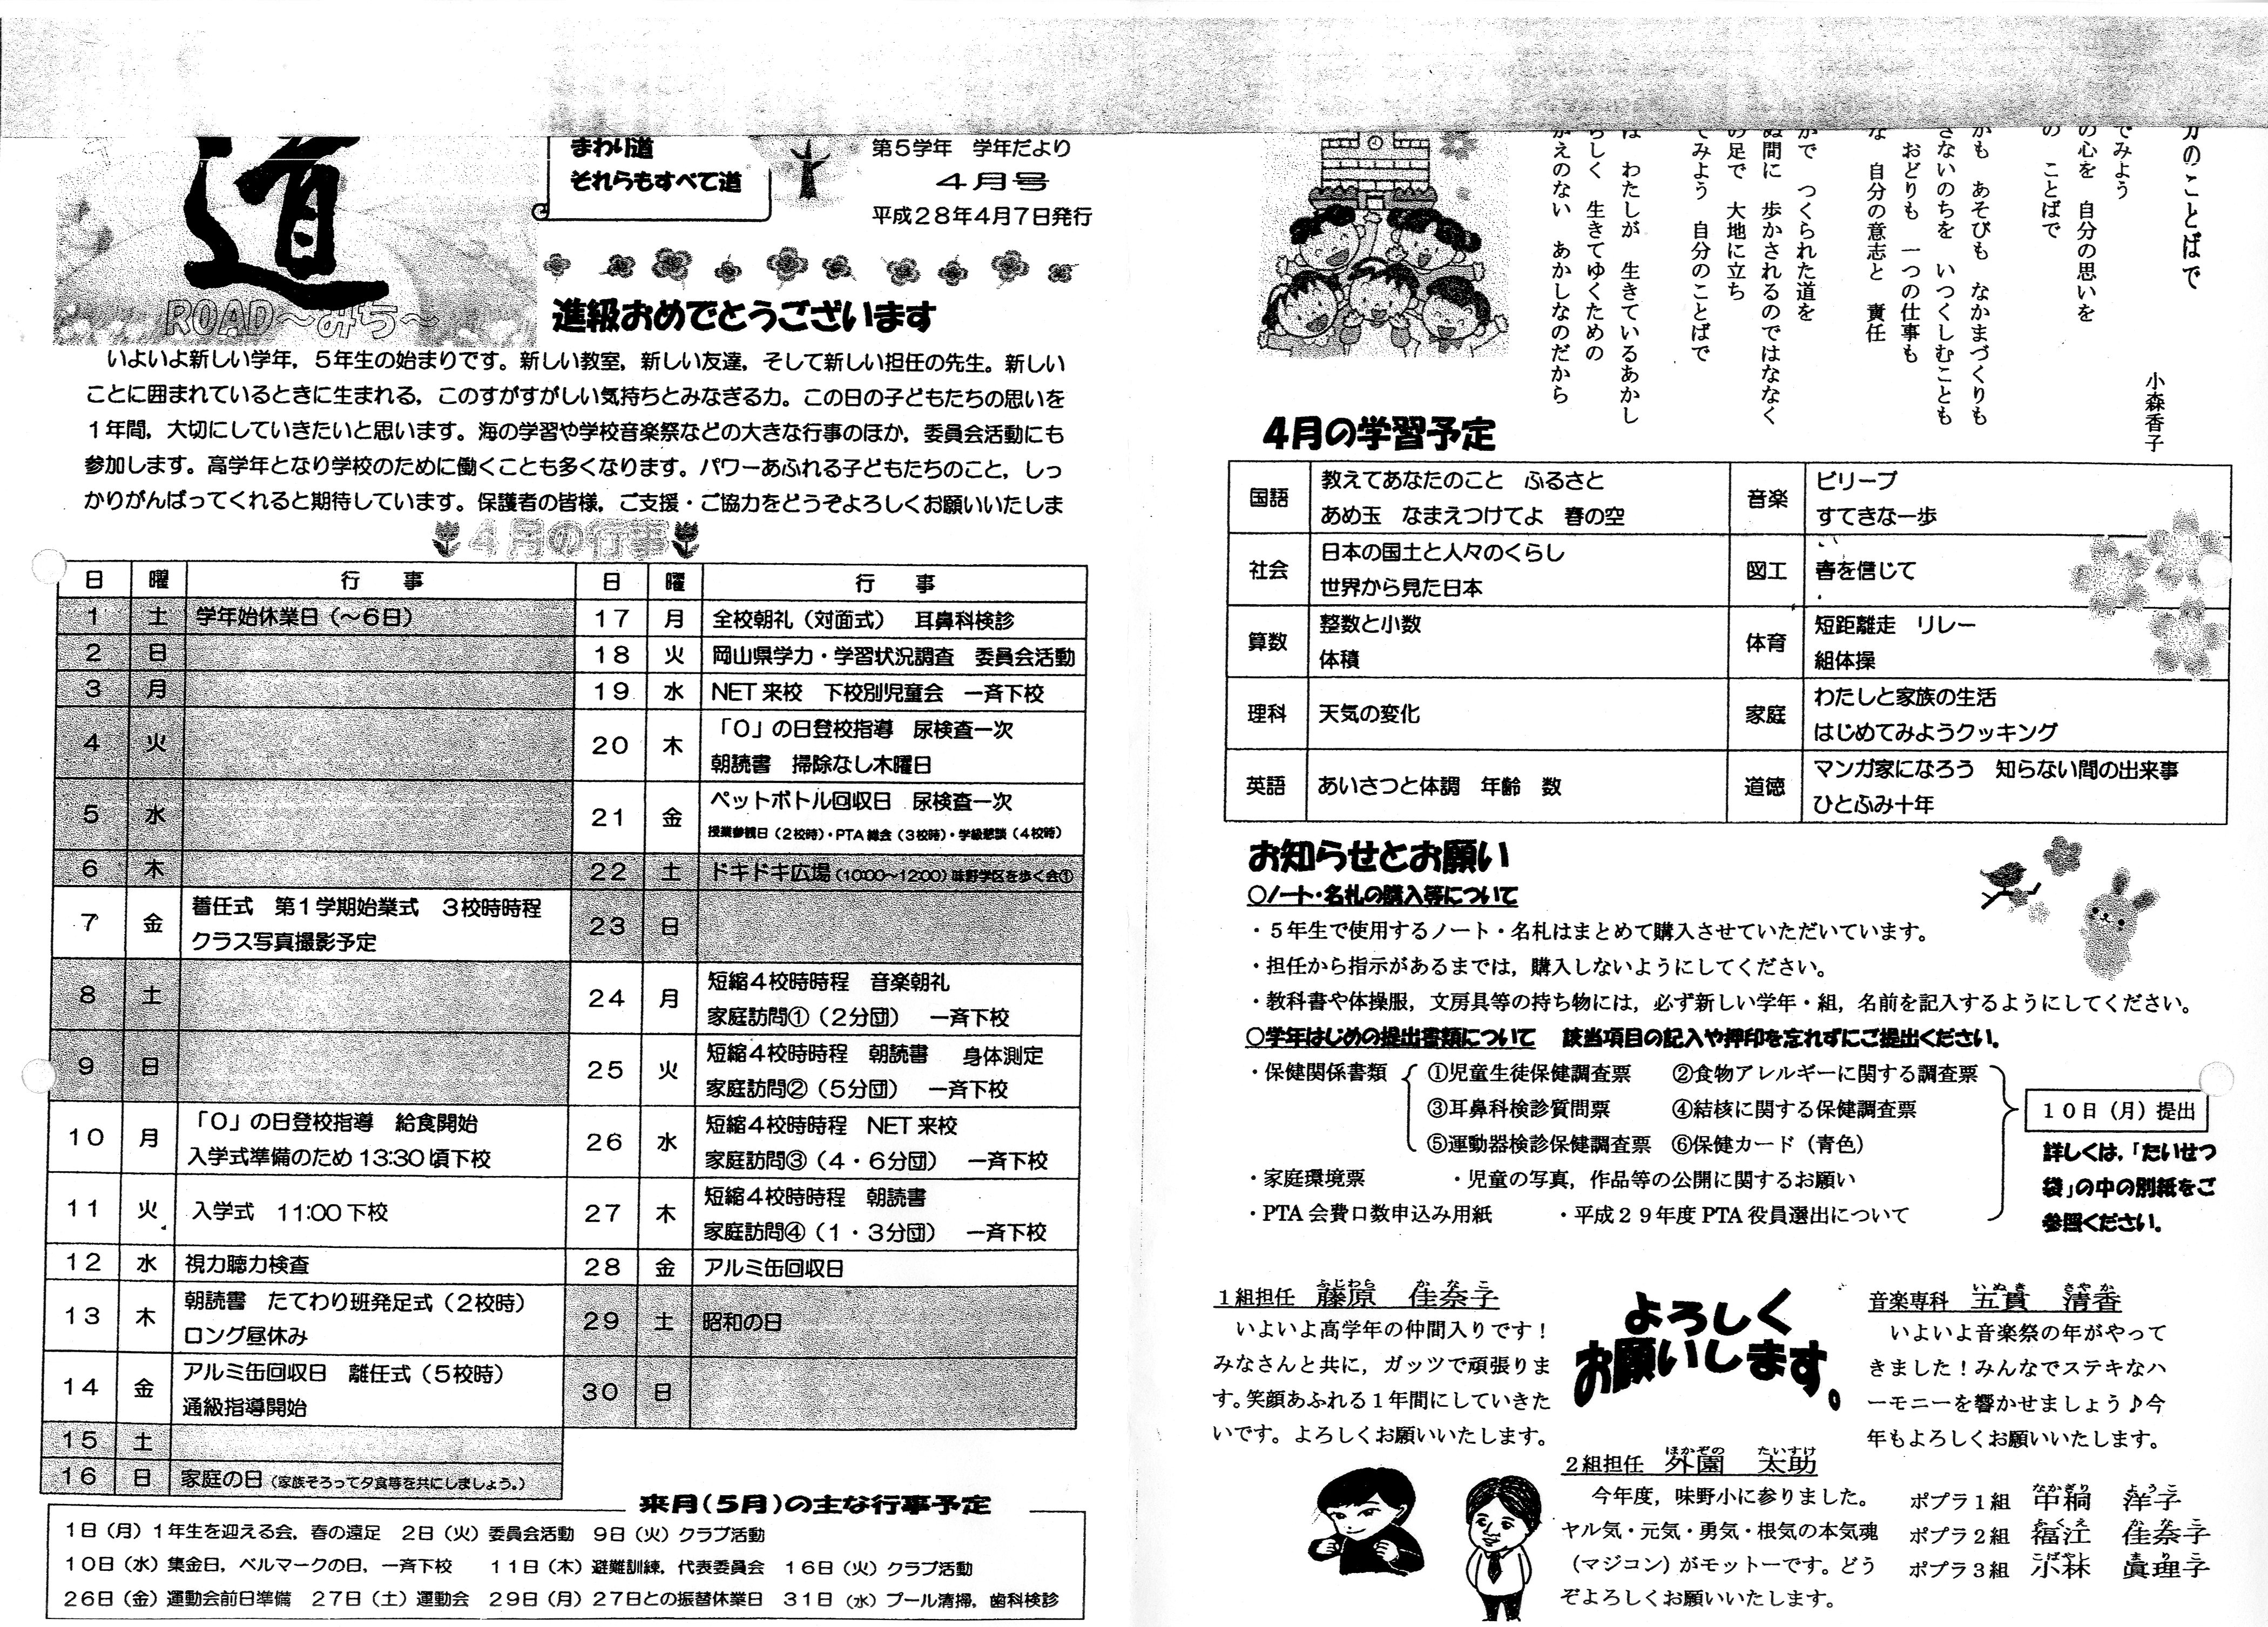 道
ROAD～みち～
まわり道
それらもすべて道
第5学年　学年だより
4月号
平成28年4月7日発行
進級おめでとうございます
いよいよ新しい学年，5年生の始まりです。新しい教室，新しい友達，そして新しい担任の先生。新しい
ことに囲まれているときに生まれる，このすがすがしい気持ちとみなぎる力。この日の子どもたちの思いを
1年間，大切にしていきたいと思います。海の学習や学校音楽祭などの大きな行事のほか，委員会活動にも
参加します。高学年となり学校のために働くことも多くなります。パワーあふれる子どもたちのこと，しっ
かりがんばってくれると期待しています。保護者の皆様，ご支援・ご協力をどうぞよろしくお願いいたしま
4月の行事
日　曜　行　事
1　土　学年始休業日（～6日）
2　日
3　月
4　火
5　水
6　木
7　金　着任式　第1学期始業式　3校時時程
クラス写真撮影予定
8　土
9　日
10　月　「0」の日登校指導　給食開始
入学式準備のため13:30頃下校
11　火　入学式　11:00下校
12　水　視力聴力検査
13　木　朝読書　たてわり班発足式（2校時）
ロング昼休み
14　金　アルミ缶回収日　離任式（5校時）
通級指導開始
15　土
16　日　家庭の日（家族そろって夕食等を共にしましょう。）
日　曜　行　事
17　月　全校朝礼（対面式）　耳鼻科検診
18　火　岡山県学力・学習状況調査　委員会活動
19　水　NET来校　下校別児童会　一斉下校
20　木　「0」の日登校指導　尿検査一次
朝読書　掃除なし木曜日
21　金　ペットボトル回収日　尿検査一次
授業参観日（2校時）・PTA総会（3校時）・学級懇談（4校時）
22　土　ドキドキ広場（10:00～12:00）味野学区を歩く会①
23　日
24　月　短縮4校時時程　音楽朝礼
家庭訪問①（2分団）　一斉下校
25　火　短縮4校時時程　朝読書　身体測定
家庭訪問②（5分団）　一斉下校
26　水　短縮4校時時程　NET来校
家庭訪問③（4・6分団）　一斉下校
27　木　短縮4校時時程　朝読書
家庭訪問④（1・3分団）　一斉下校
28　金　アルミ缶回収日
29　土　昭和の日
30　日
来月（5月）の主な行事予定
1日（月）1年生を迎える会，春の遠足　2日（火）委員会活動　9日（火）クラブ活動
10日（水）集金日，ベルマークの日，一斉下校　11日（木）避難訓練，代表委員会　16日（火）クラブ活動
26日（金）運動会前日準備　27日（土）運動会　29日（月）27日との振替休業日　31日（水）プール清掃，歯科検診
のことばで
小森香子
でみよう
の心を　自分の思いを
の　ことばで
がも　あそびも　なかまづくりも
さないのちを　いつくしむことも
おどりも　一つの仕事も
な　自分の意志と　責任
がで　つくられた道を
ぬ間に　歩かされるのではななく
の足で　大地に立ち
てみよう　自分のことばで
は　わたしが　生きているあかし
らしく　生きてゆくための
がえのない　あかしなのだから
4月の学習予定
国語　教えてあなたのこと　ふるさと
あめ玉　なまえつけてよ　春の空
音楽　ビリーブ
すてきな一歩
社会　日本の国土と人々のくらし
世界から見た日本
図工　春を信じて
算数　整数と小数
体積
体育　短距離走　リレー
組体操
理科　天気の変化
家庭　わたしと家族の生活
はじめてみようクッキング
英語　あいさつと体調　年齢　数
道徳　マンガ家になろう　知らない間の出来事
ひとふみ十年
お知らせとお願い
○ノート・名札の購入等について
・5年生で使用するノート・名札はまとめて購入させていただいています。
・担任から指示があるまでは，購入しないようにしてください。
・教科書や体操服，文房具等の持ち物には，必ず新しい学年・組，名前を記入するようにしてください。
○学年はじめの提出書類について　該当項目の記入や押印を忘れずにご提出ください。
・保健関係書類　①児童生徒保健調査票　②食物アレルギーに関する調査票
③耳鼻科検診質問票　④結核に関する保健調査票
⑤運動器検診保健調査票　⑥保健カード（青色）
・家庭環境票　・児童の写真，作品等の公開に関するお願い
・PTA会費口数申込み用紙　・平成29年度PTA役員選出について
10日（月）提出
詳しくは，「たいせつ
袋」の中の別紙をご
参照ください。
1組担任　藤原　佳奈子
ふじわら　かなこ
いよいよ高学年の仲間入りです！
みなさんと共に，ガッツで頑張りま
す。笑顔あふれる1年間にしていきた
いです。よろしくお願いいたします。
よろしく
お願いします。
音楽専科　五貫　清香
いぬき　さやか
いよいよ音楽祭の年がやって
きました！みんなでステキなハ
ーモニーを響かせましょう♪今
年もよろしくお願いいたします。
2組担任　外園　太助
ほかぞの　たいすけ
今年度，味野小に参りました。
ヤル気・元気・勇気・根気の本気魂
（マジコン）がモットーです。どう
ぞよろしくお願いいたします。
ポプラ1組　中桐　洋子
なかぎり　ようこ
ポプラ2組　福江　佳奈子
ふくえ　かなこ
ポプラ3組　小林　眞理子
こばやし　まりこ